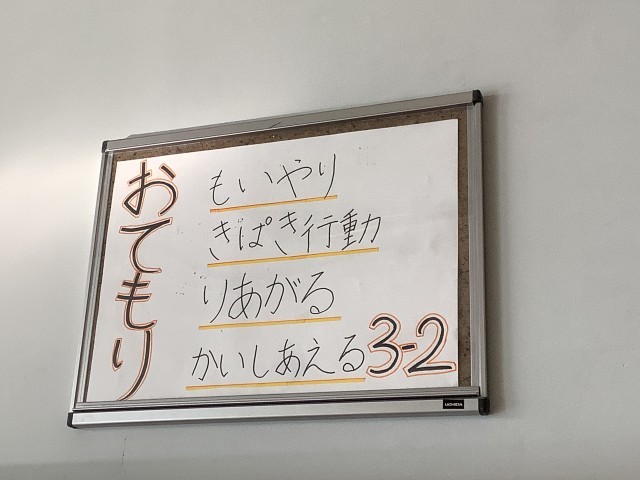 おてもり
もいやり
きぱき行動
りあがる
かいしあえる
3-2
UCHIDA